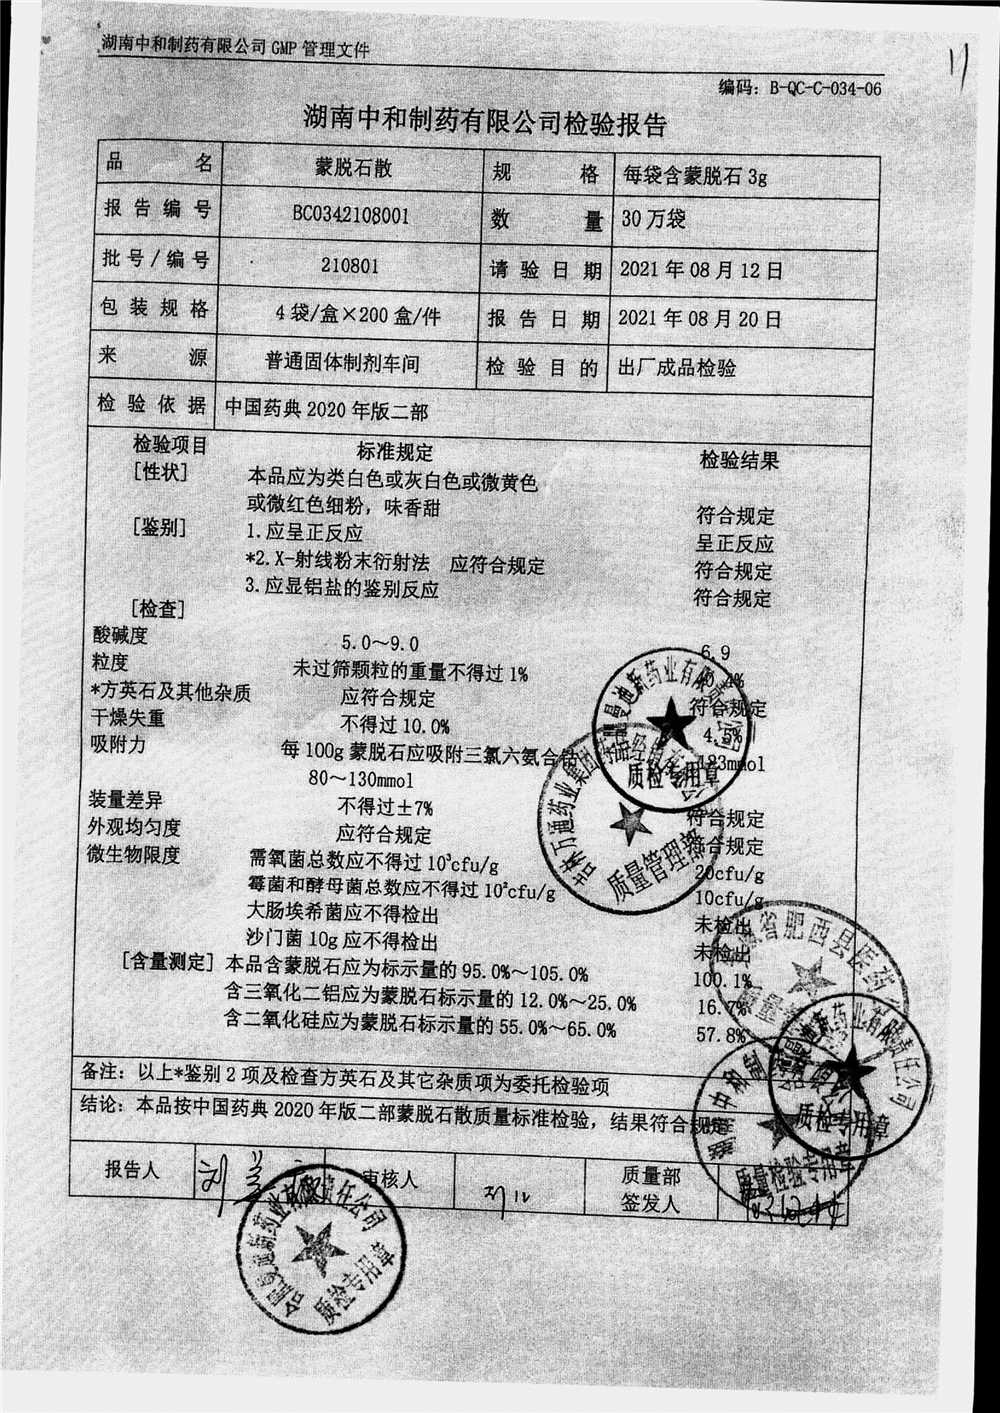 湖南中和制药有限公司GMP管理文件
编码：B-QC-C-034-06
湖南中和制药有限公司检验报告
品名 蒙脱石散 规格 每袋含蒙脱石3g
报告编号 BC0342108001 数量 30万袋
批号/编号 210801 请验日期 2021年08月12日
包装规格 4袋/盒×200盒/件 报告日期 2021年08月20日
来源 普通固体制剂车间 检验目的 出厂成品检验
检验依据 中国药典2020年版二部
检验项目 标准规定 检验结果
[性状] 本品应为类白色或灰白色或微黄色
或微红色细粉，味香甜 符合规定
[鉴别] 1.应呈正反应 呈正反应
*2.X-射线粉末衍射法 应符合规定 符合规定
3.应显铝盐的鉴别反应 符合规定
[检查]
酸碱度 5.0～9.0 6.9
粒度 未过筛颗粒的重量不得过1% 0.4%
*方英石及其他杂质 应符合规定 符合规定
干燥失重 不得过10.0% 4.5%
吸附力 每100g蒙脱石应吸附三氯六氨合钴 123mmol
80～130mmol
装量差异 不得过±7% 符合规定
外观均匀度 应符合规定 符合规定
微生物限度 需氧菌总数应不得过10³cfu/g 20cfu/g
霉菌和酵母菌总数应不得过10²cfu/g 10cfu/g
大肠埃希菌应不得检出 未检出
沙门菌10g应不得检出 未检出
[含量测定] 本品含蒙脱石应为标示量的95.0%～105.0% 100.1%
含三氧化二铝应为蒙脱石标示量的12.0%～25.0% 16.7%
含二氧化硅应为蒙脱石标示量的55.0%～65.0% 57.8%
备注：以上*鉴别2项及检查方英石及其它杂质项为委托检验项
结论：本品按中国药典2020年版二部蒙脱石散质量标准检验，结果符合规定
报告人 审核人 质量部
签发人
合肥曼迪新药业有限责任公司
质检专用章
吉林万通药业集团
质量管理部
省肥西县医药
合肥曼迪新药业有限责任公司
质检专用章
质量检验专用章
合肥曼迪新药业有限责任公司
质检专用章